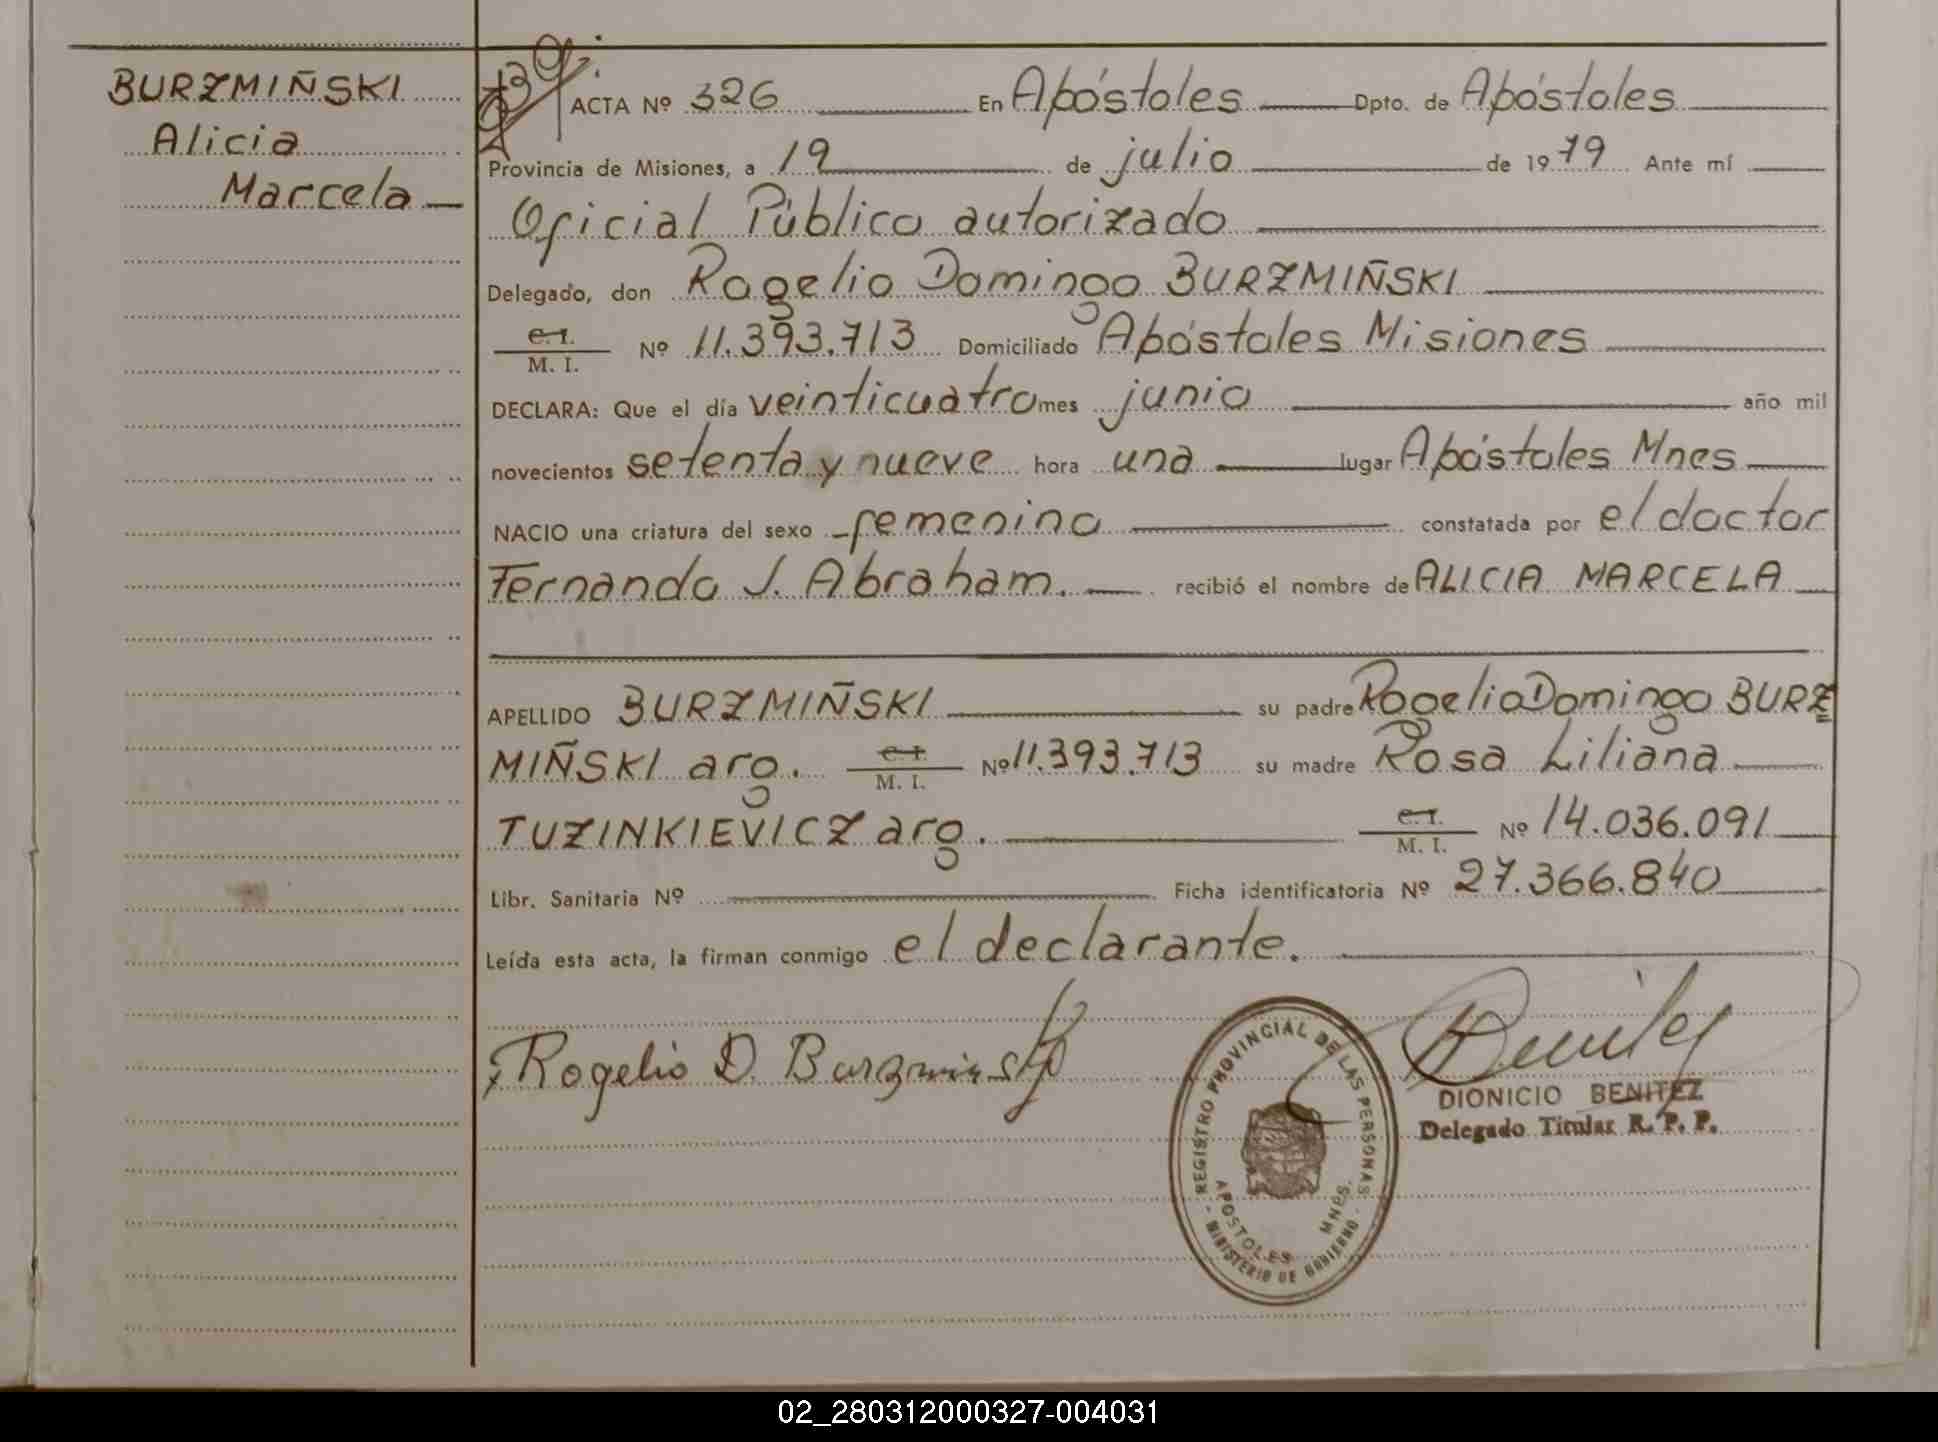 BURZMIÑSKI
Alicia
Marcela
ACTA Nº 326 En Apóstoles Dpto. de Apóstoles
Provincia de Misiones, a 19 de julio de 1979 Ante mí
Oficial Público autorizado
Delegado, don Rogelio Domingo BURZMIÑSKI
C. I.
M. I. Nº 11.393.713 Domiciliado Apóstoles Misiones
DECLARA: Que el día veinticuatro mes junio año mil
novecientos setenta y nueve hora una lugar Apóstoles Mnes
NACIO una criatura del sexo femenino constatada por el doctor
Fernando J. Abraham. recibió el nombre de ALICIA MARCELA
APELLIDO BURZMIÑSKI su padre Rogelio Domingo BURZ
MIÑSKI arg. C. I. M. I. Nº 11.393.713 su madre Rosa Liliana
TUZINKIEVICZ arg. C. I. M. I. Nº 14.036.091
Libr. Sanitaria Nº Ficha identificatoria Nº 27.366.840
Leída esta acta, la firman conmigo el declarante.
Rogelio D. Burzminski
Benitez
DIONICIO BENITEZ
Delegado Titular R. P. P.
REGISTRO PROVINCIAL DE LAS PERSONAS
APOSTOLES MNES.
MINISTERIO DE GOBIERNO
02_280312000327-004031